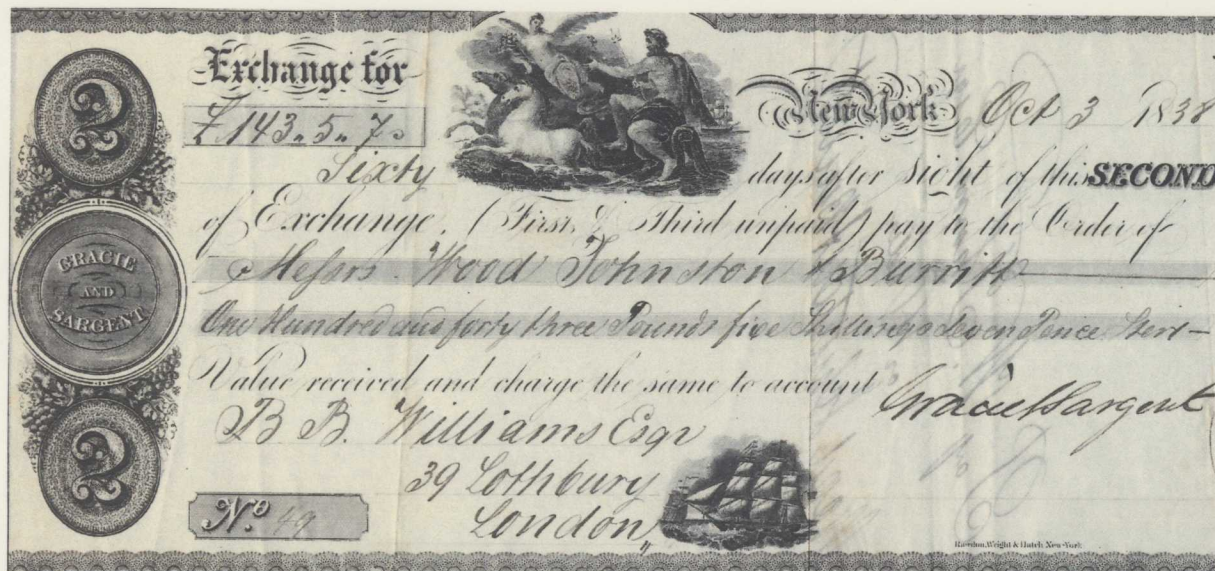 2
Exchange for
£ 143 " 5 " 7 "
New York Oct 3 1838
Sixty days after sight of this SECOND
of Exchange, (First & Third unpaid) pay to the Order of
Messrs. Wood Johnston & Burritt
One Hundred and forty three Pounds five Shillings Seven Pence Sterl -
Value received and charge the same to account
Gracie & Sargent
GRACIE
AND
SARGENT
2
B. B. Williams Esqr
39 Lothbury
London
No 49
Rawdon, Wright & Hatch New-York